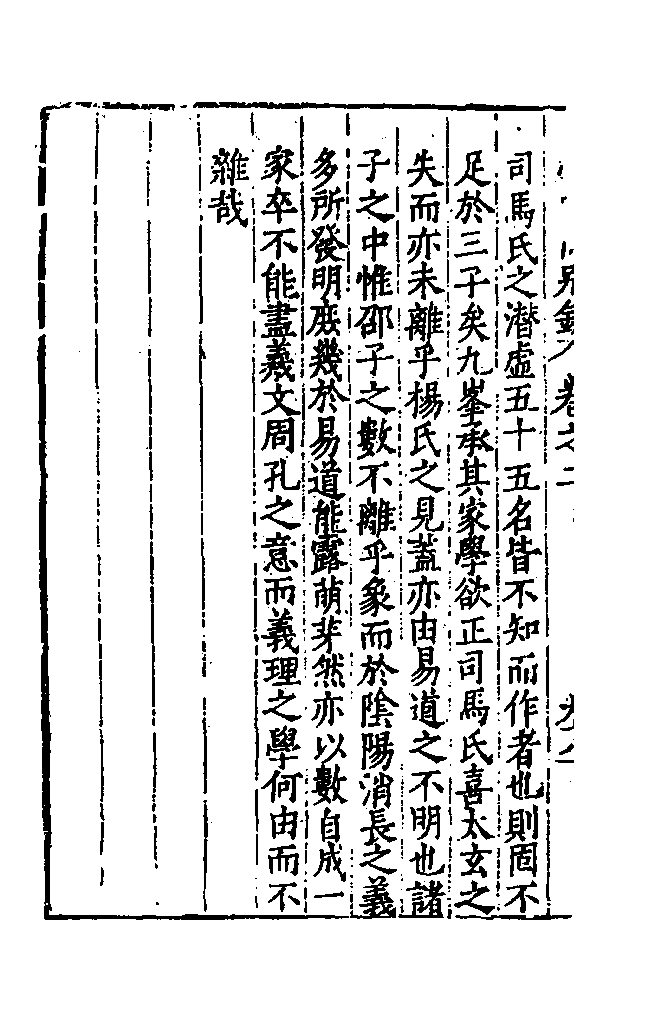 司馬氏之潜虛五十五名皆不知而作者也則固不
足於三子矣九峯承其家學欲正司馬氏喜太玄之
失而亦未離乎楊氏之見蓋亦由易道之不明也諸
子之中惟邵子之數不離乎象而於陰陽消長之義
多所發明庶幾於易道能露萌芽然亦以數自成一
家卒不能盡羲文周孔之意而義理之學何由而不
雜哉